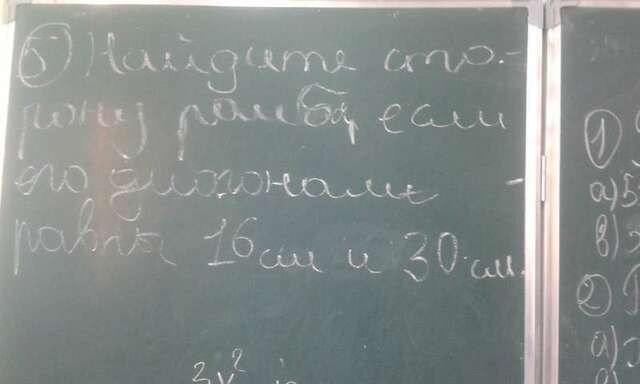 5 Найдите сто-
рону ромба, если
его диагонали
равны 16 см и 30 см.
3x²
1
а) 5
в)
2
а)